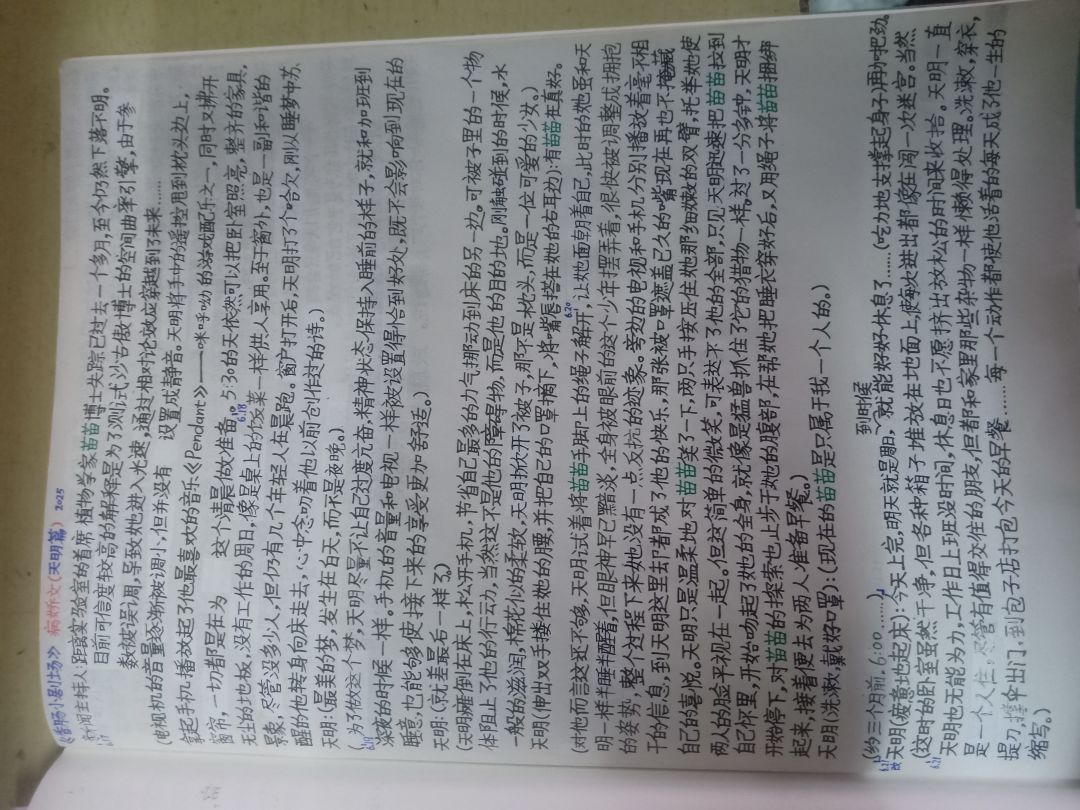 《香肠小剧场》 病娇文(天明篇) 2025
新闻主持人:距离实验室的首席植物学家苗苗博士失踪已过去一个多月,至今仍然下落不明。
目前可信度较高的解释是为了测试式沙古傲博士的空间曲率引擎,由于参
数被误调,导致她进入光速,通过相对论效应穿越到了未来……
(电视机的音量逐渐被调小,但并没有 设置成静音。天明将手中的遥控甩到枕头边上,
拿起手机播放起了他最喜欢的音乐《Pendant》——咪呼呦的游戏配乐之一,同时又拂开
窗帘,一切都是在为 这个清晨做准备。5:30的天依然可以把卧室照亮,整齐的家具,
无尘的地板,没有工作的周日,像是桌上的饭菜一样供人享用。至于窗外,也是一副和谐的
景象,尽管没多少人,但仍有几个年轻人在晨跑。窗户打开后,天明打了个哈欠,刚从睡梦中苏
醒的他转身向床走去,心中念叨着他以前创作过的诗。)
天明:最美的梦,发生在白天,而不是夜晚。
(为了做这个梦,天明尽量不让自己过度亢奋,精神状态保持入睡前的样子,就和加班到
深夜的时候一样。手机的音量和电视一样被设置得恰到好处,既不会影响到现在的
睡意,也能够使接下来的享受更加舒适。)
天明:(就差最后一样了)
(天明瘫倒在床上,松开手机,节省自己最多的力气挪动到床的另一边。可被子里的一个物
体阻止了他的行动,当然这不是他的障碍物,而是他的目的地。刚触碰到的时候,水
一般的滋润,棉花似的柔软,天明掀开了被子,那不是枕头,而是一位可爱的少女。)
天明(伸出双手搂住她的腰,并把自己的口罩摘下,将嘴唇搭在她的右耳边):有苗苗在真好。
(对他而言这还不够,天明试着将苗苗手脚上的绳子解开,让她面朝着自己,此时的她虽和天
明一样半睡半醒着,但眼神早已黯淡,全身被眼前的这个少年摆弄着,很快被调整成拥抱
的姿势,整个过程下来她没有一点反抗的迹象。旁边的电视和手机分别播放着毫不相
干的信息,到天明这里却都成了他的快乐,那张被口罩遮盖已久的嘴现在再也不掩藏
自己的喜悦。天明只是温柔地对苗苗笑了一下,两只手按压住她那细嫩的双臂,托举她使
两人的脸平视在一起。但这简单的微笑,可表达不了他的全部,只见天明迅速把苗苗拉到
自己怀里,开始吻起了她的全身,就像是猛兽抓住了它的猎物一样。过了一分多钟,天明才
开始停下,对苗苗的探索也止步于她的腰部,在帮她把睡衣穿好后,又用绳子将苗苗捆绑
起来,接着便去为两人准备早餐。)
天明(洗漱,戴好口罩):(现在的苗苗是只属于我一个人的。)
(约三个月前,6:00……)
天明(疲惫地起床):今天上完,明天就是周日,到时候就能好好休息了……(吃力地支撑起身子)再加把劲。
(这时的卧室虽然干净,但各种箱子堆放在地面上,使每次进出都像在闯一次迷宫。当然
天明也无能为力,工作日上班没时间,休息日也不愿挤出放松的时间来收拾。天明一直
是一个人住,尽管有值得交往的朋友,但都和家里那些杂物一样懒得处理。洗漱,穿衣,
提刀,撑伞出门,到包子店打包今天的早餐……每一个动作都使他活着的每天成了他一生的
缩写。)